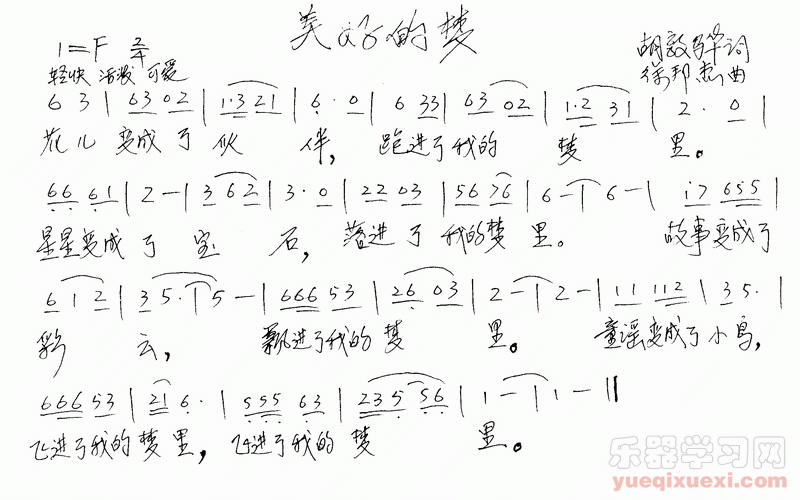 美好的梦
1=F 2/4 胡敦骅词
轻快 活泼 可爱 徐邦杰曲
6 3 | 63 02 | 1·3 21 | 6· 0 | 6 33 | 63 02 | 1·2 31 | 2· 0 |
花儿 变成了伙伴, 跑进了我的梦里。
66 61 | 2 - | 3 62 | 3· 0 | 22 03 | 56 76 | 6 - | 6 - | i7 655 |
星星变成了宝石, 落进了我的梦里。 故事变成了
6 1 2 | 3 5· | 5 - | 666 53 | 26 03 | 2 - | 2 - | 11 112 | 35· |
彩云, 飘进了我的梦里。 童谣变成了小鸟,
666 53 | 21 6· | 555 63 | 235 56 | 1 - | 1 - ||
飞进了我的梦里, 飞进了我的梦里。
乐器学习网
yueqixuexi.com